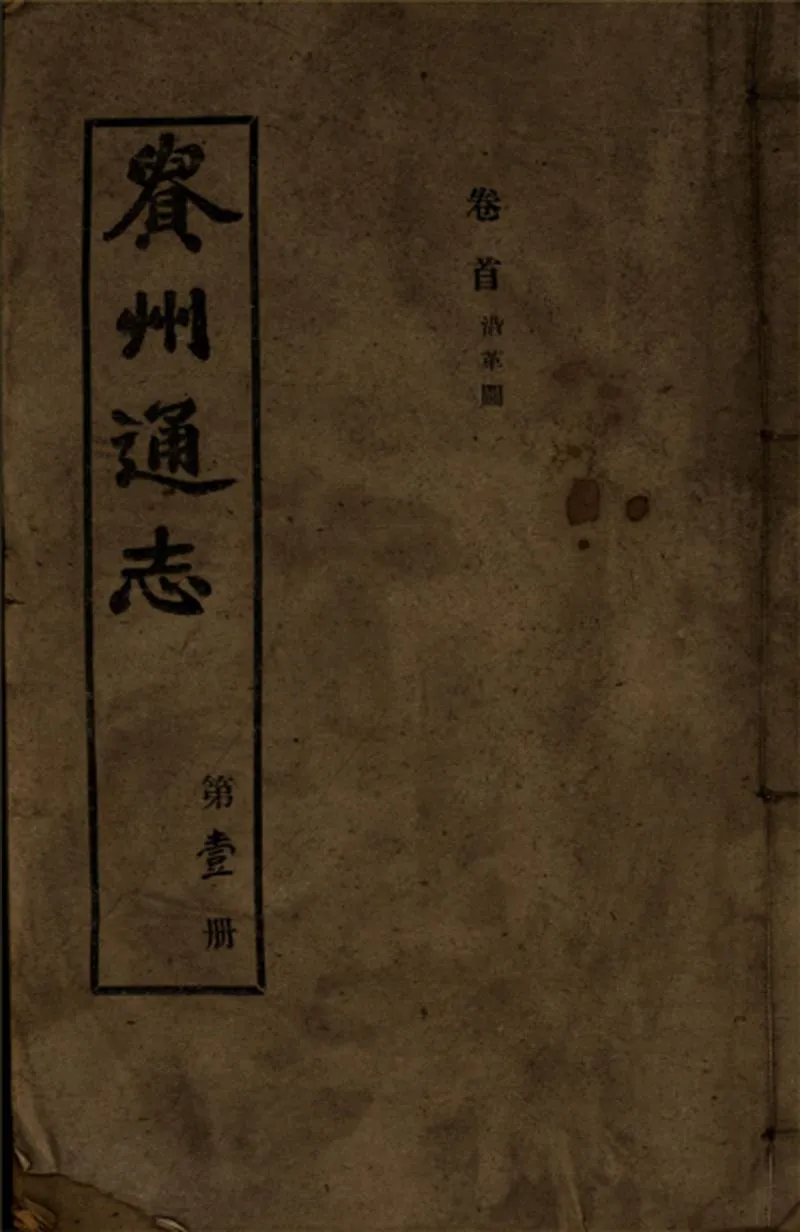 卷首 沿革圖
貴州通志
第壹册